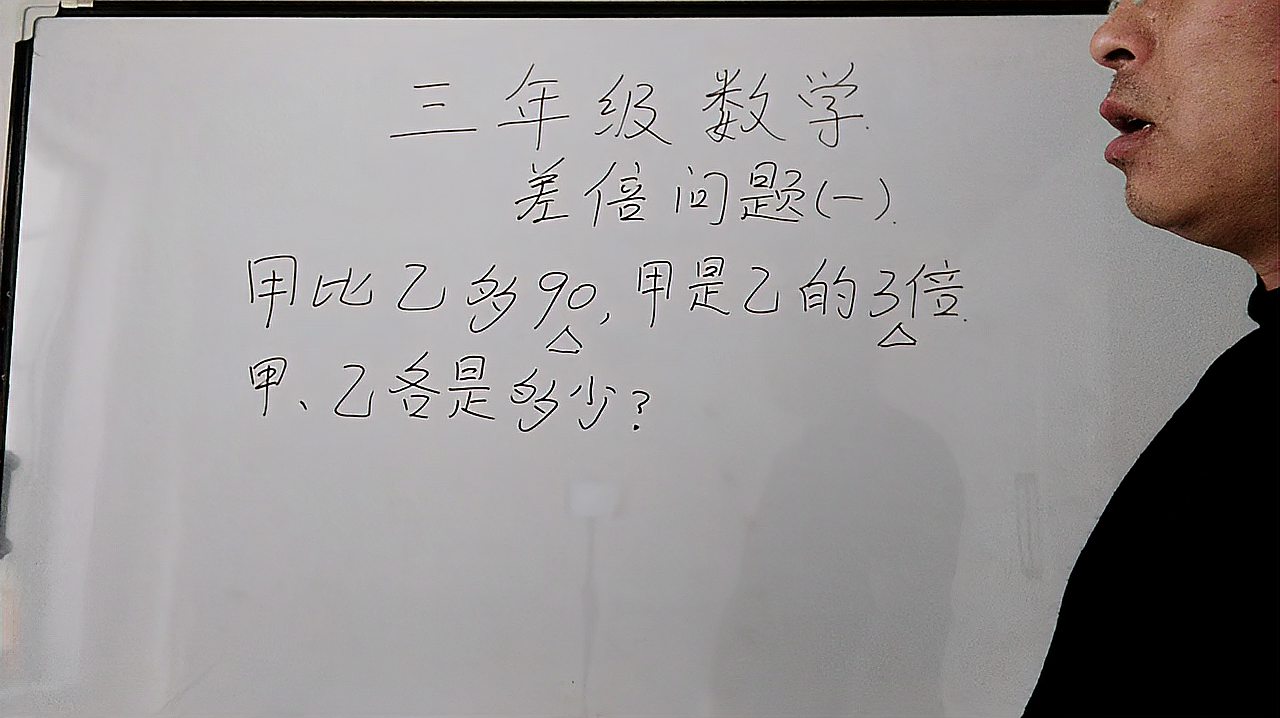 三年级数学
差倍问题(一)
甲比乙多90,甲是乙的3倍.
甲、乙各是多少?